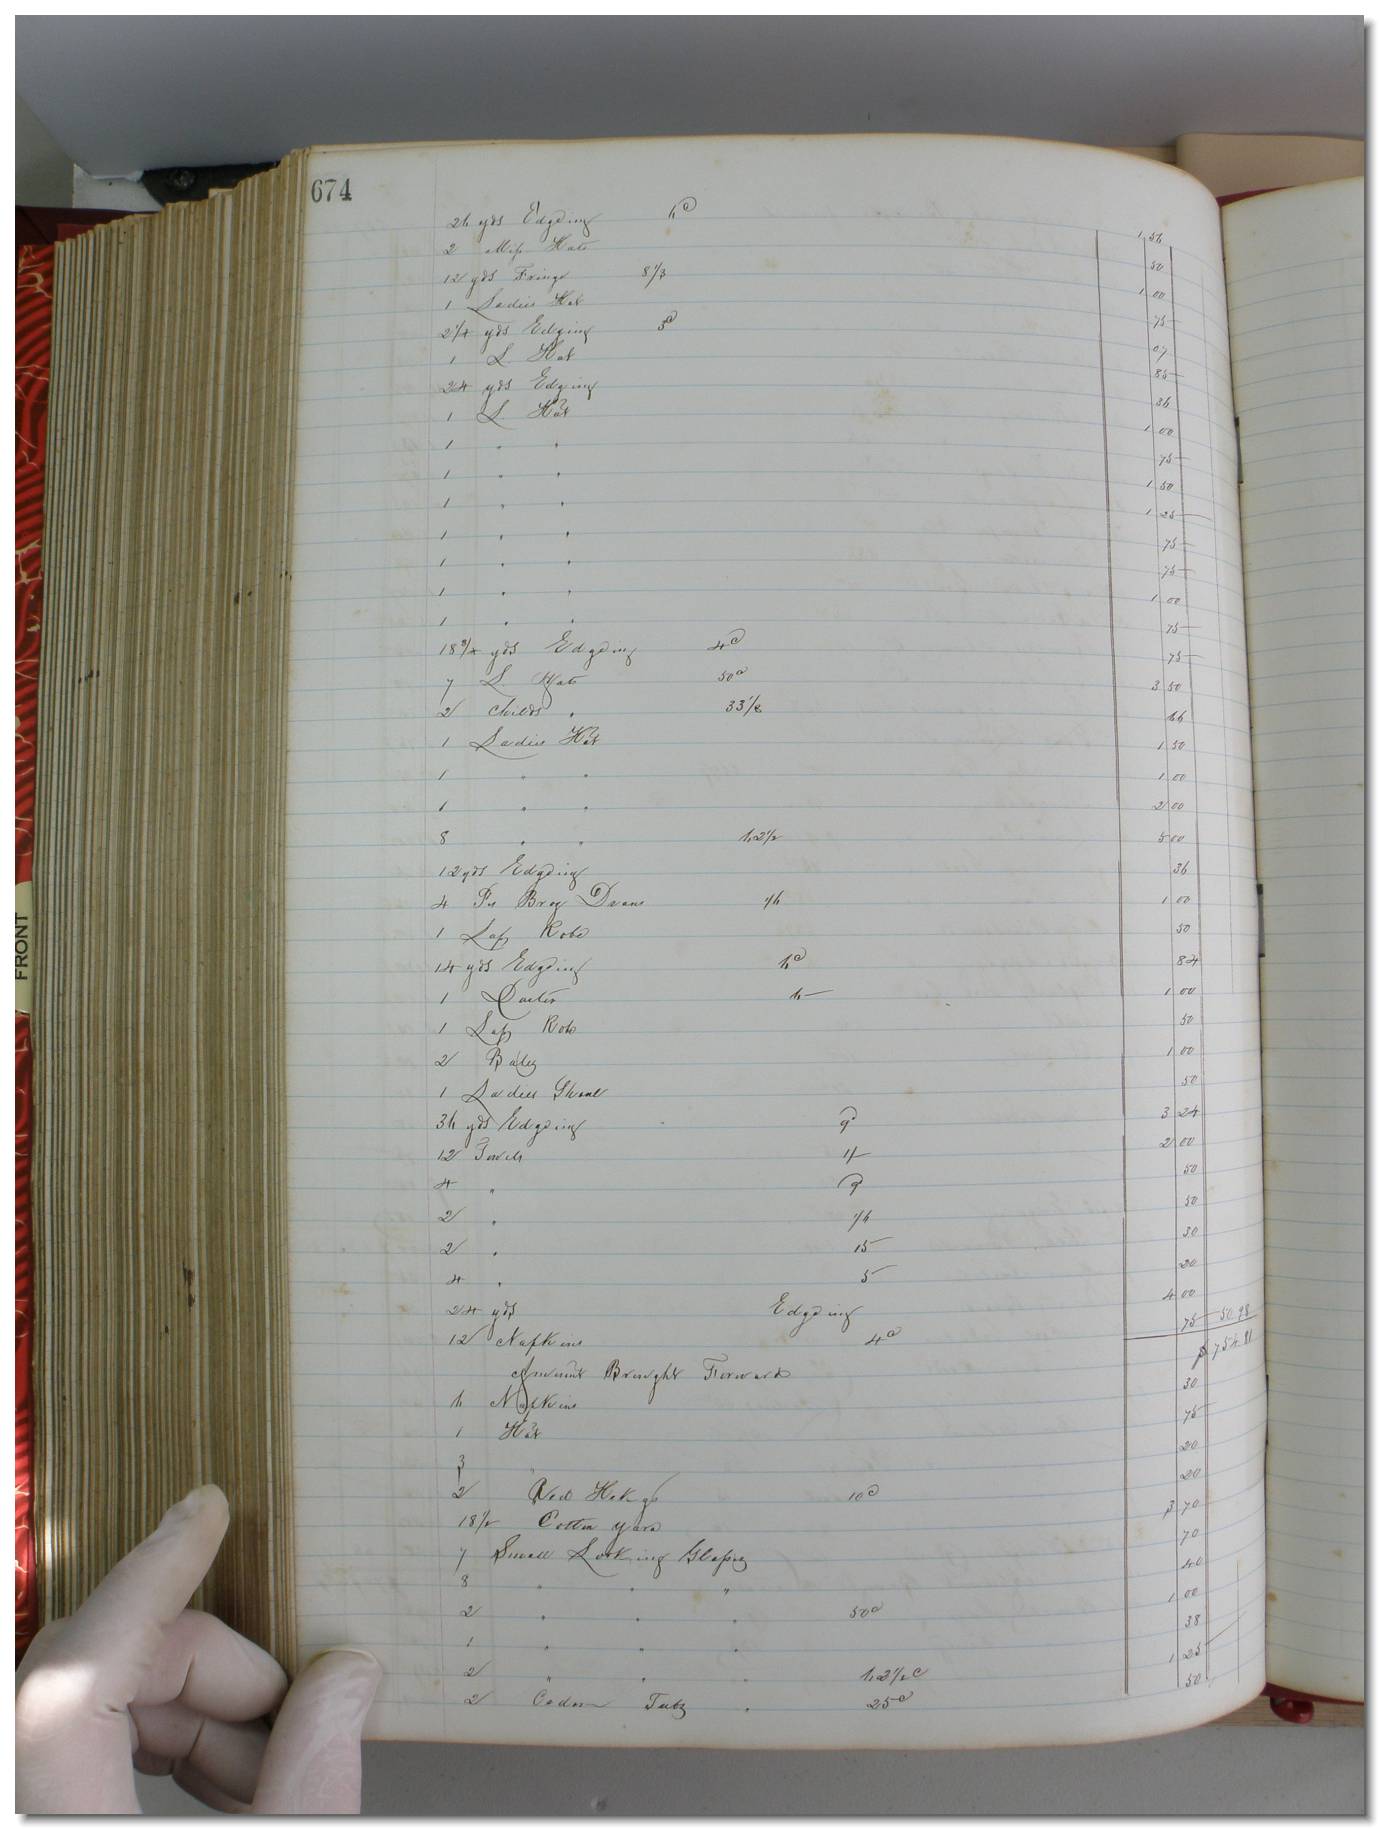 674
26 yds Edgeing 6c 1 56
2 Miss Hats 50
12 yds Fringe 8 1/3 1 00
1 Ladies Hat 75
2 1/4 yds Edging 3c 07
1 L Hat 85
24 yds Edging 36
1 L Hat 1 00
1 " " 75
1 " " 1 50
1 " " 1 25
1 " " 75
1 " " 75
1 " " 1 00
1 " " 75
18 3/4 yds Edgeing 4c 75
7 L Hats 50c 3 50
2 Childs " 33 1/3 66
1 Ladies Hat 1 50
1 " " 1 00
1 " " 2 00
8 " " 62 1/2 5 00
12 yds Edgeing 36
4 Pr Boy 1/6 1 00
1 Lap Robe 50
14 yds Edgeing 6c 84
1 Duster 1 00
1 Lap Robe 50
2 1 00
1 Ladies Shawl 50
36 yds Edgeing 9 3 24
12 Towels 2 00
4 " 50
2 " 50
2 " 15 30
4 " 5 20
24 yds Edgeing 4 00
12 Napkins 75 50.98
Amount Brought Forward $754.81
6 Napkins 30
1 Hat 75
3 " 20
2 Red Hdkfs 10c 20
18 1/2 Cotton Yarn 3 70
7 Small Looking Glasses 70
8 " " " 40
2 " " " 50c 1 00
1 " " " 38
2 " " " 62 1/2c 1 25
2 Cedar Tubs " 25c 50
FRONT